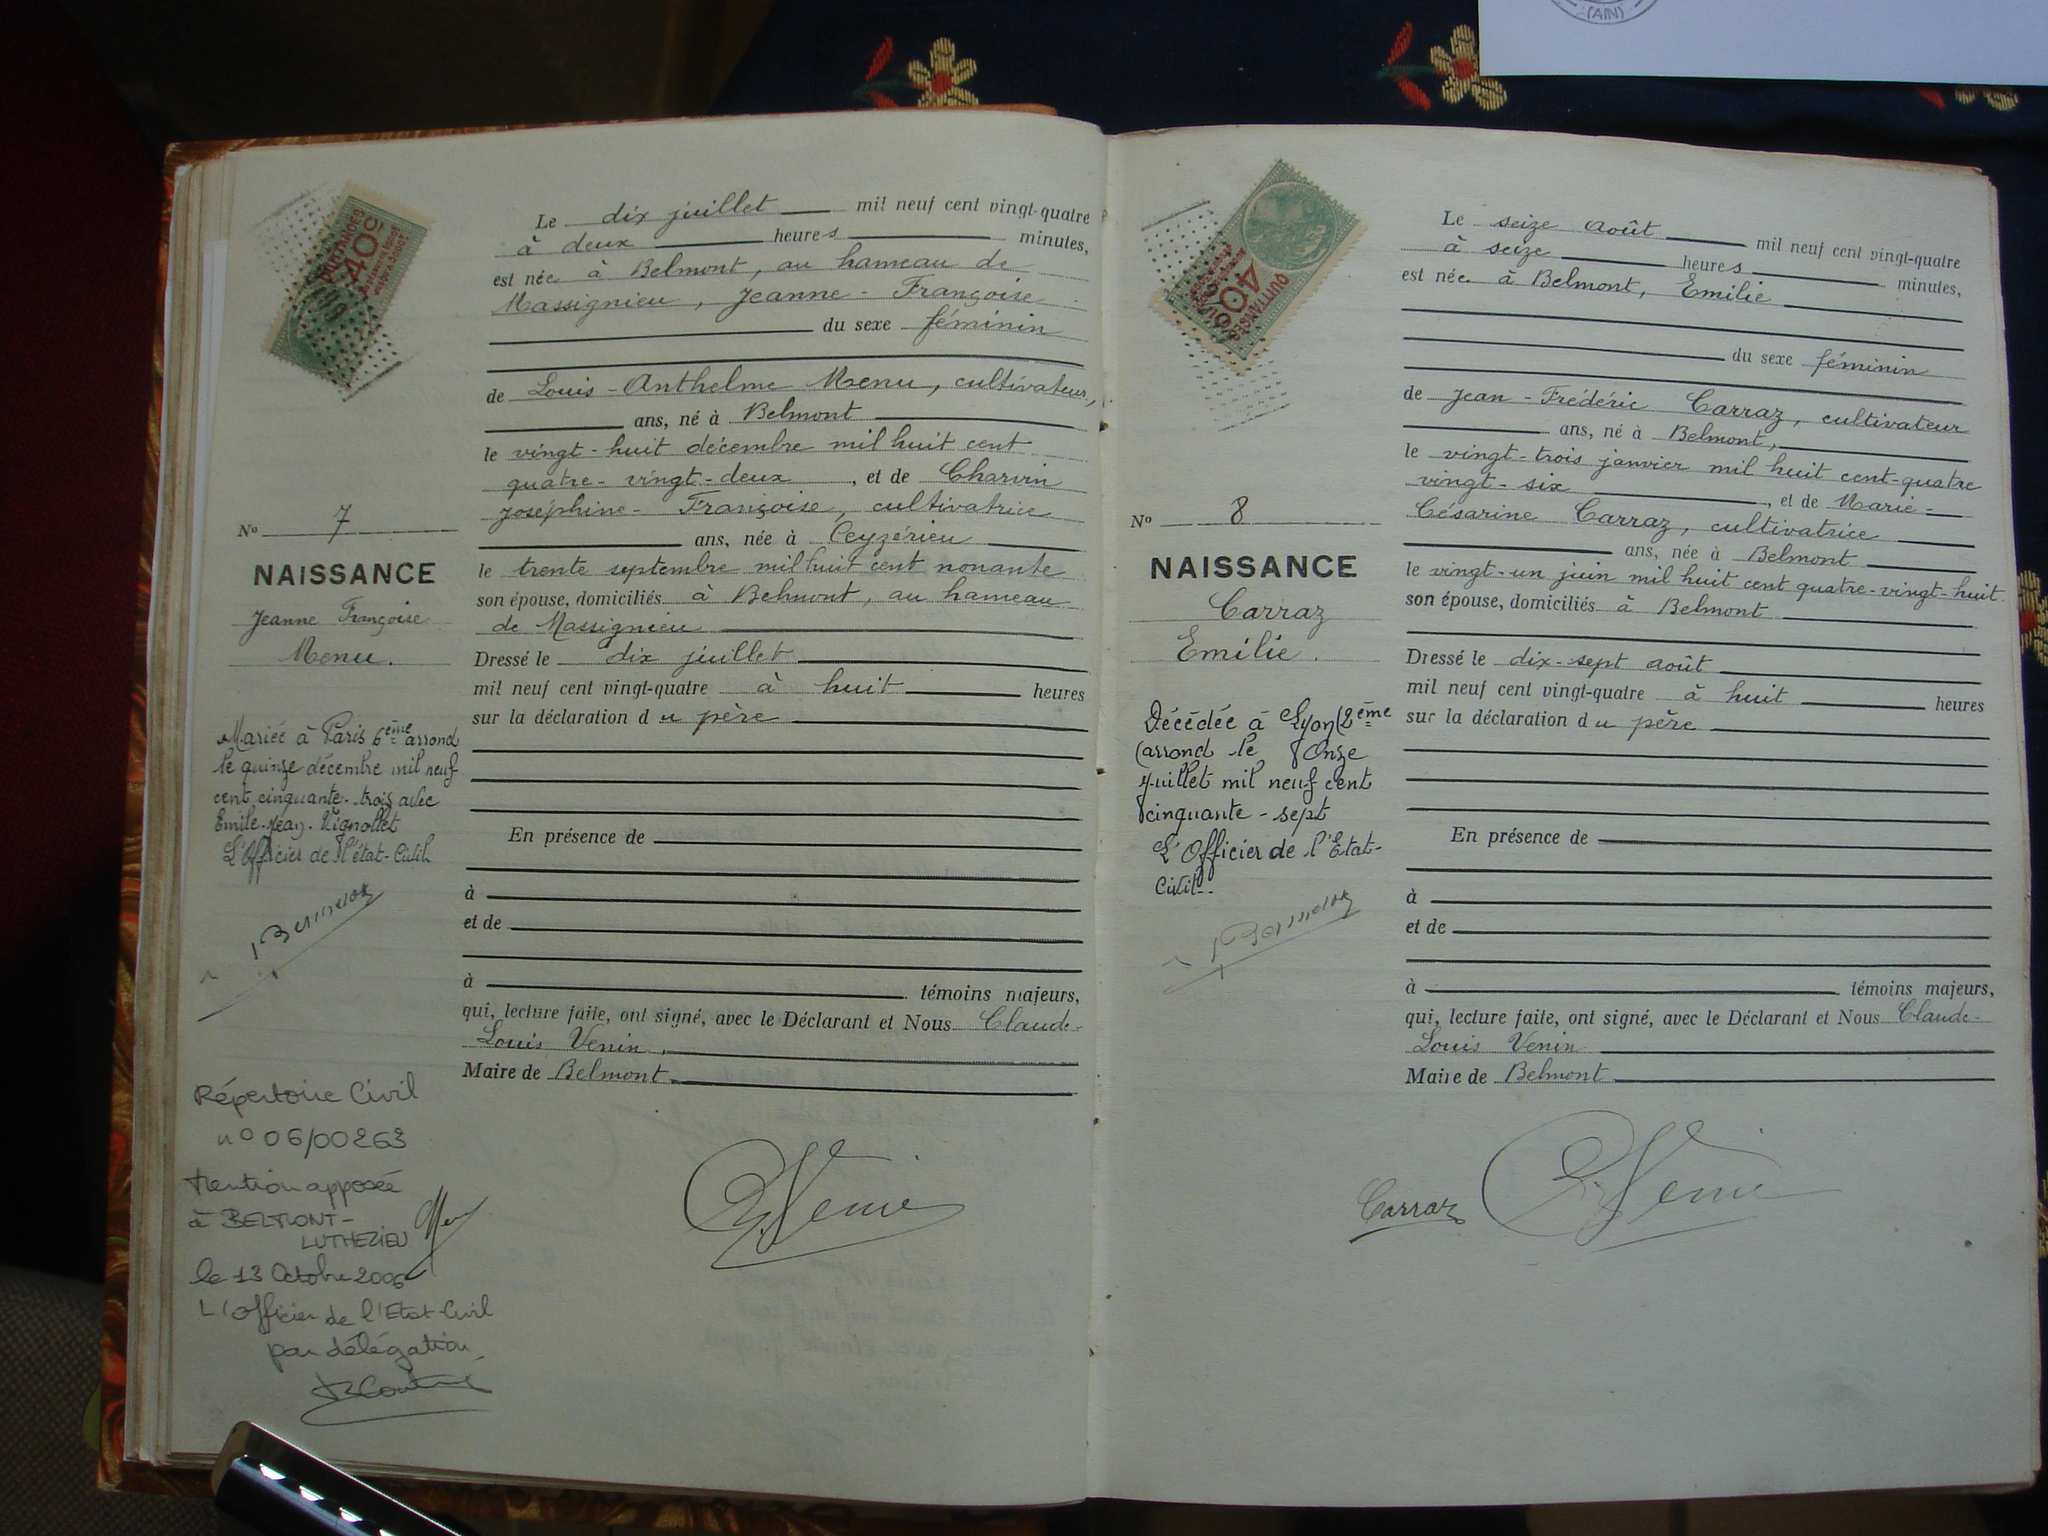 (AIN)
QUITTANCES
40c
Le dix juillet mil neuf cent vingt-quatre
à deux heures minutes,
est née à Belmont, au hameau de
Massignieu, Jeanne-Françoise
du sexe féminin
de Louis-Anthelme Menu, cultivateur,
ans, né à Belmont
le vingt-huit décembre mil huit cent
quatre-vingt-deux, et de Charvin
Joséphine-Françoise, cultivatrice
ans, née à Ceyzérieu
le trente septembre mil huit cent nonante
son épouse, domiciliés à Belmont, au hameau
de Massignieu
Dressé le dix juillet
mil neuf cent vingt-quatre à huit heures
sur la déclaration du père
En présence de
à
et de
à témoins majeurs,
qui, lecture faite, ont signé, avec le Déclarant et Nous Claude-
Louis Venin,
Maire de Belmont
No 7
NAISSANCE
Jeanne Françoise
Menu.
Mariée à Paris 6ème arrond
le quinze décembre mil neuf
cent cinquante-trois avec
Emile-Jean-Vignollet
L'Officier de l'état-Civil
Répertoire Civil
n° 06/00263
Mention apposée
à BELMONT-
LUTHEZIEU
le 13 Octobre 2006
L'officier de l'Etat-Civil
par délégation
QUITTANCES
40c
Le seize août mil neuf cent vingt-quatre
à seize heures minutes,
est née à Belmont, Emilie
du sexe féminin
de Jean-Frédéric Carraz, cultivateur
ans, né à Belmont,
le vingt-trois janvier mil huit cent-quatre
vingt-six, et de Marie-
Césarine Carraz, cultivatrice
ans, née à Belmont
le vingt-un juin mil huit cent quatre-vingt-huit
son épouse, domiciliés à Belmont
Dressé le dix-sept août
mil neuf cent vingt-quatre à huit heures
sur la déclaration du père
En présence de
à
et de
à témoins majeurs,
qui, lecture faite, ont signé, avec le Déclarant et Nous Claude-
Louis Venin
Maire de Belmont
Carraz
No 8
NAISSANCE
Carraz
Emilie.
Décédée à Lyon (2ème
arrond le Onze
Juillet mil neuf cent
cinquante-sept
L'Officier de l'Etat-
Civil.